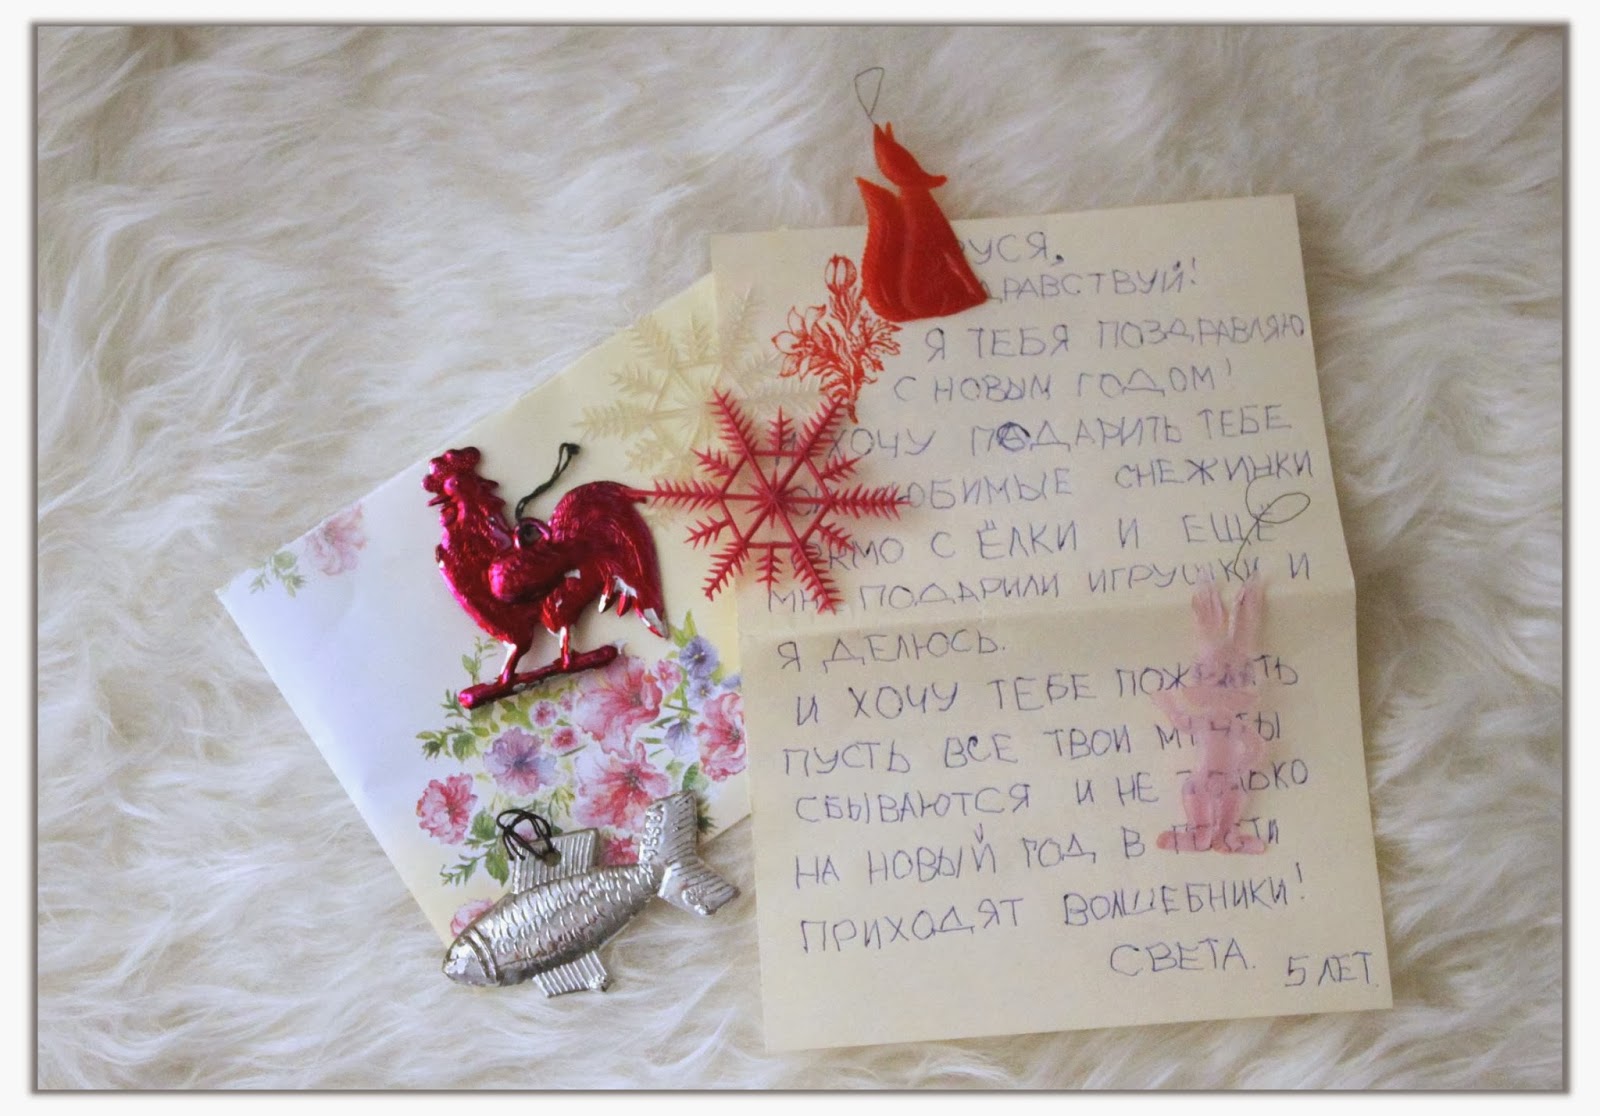 РУСЯ,
ДРАВСТВУЙ!
Я ТЕБЯ ПОЗДРАВЛЯЮ
С НОВЫМ ГОДОМ!
ХОЧУ ПОДАРИТЬ ТЕБЕ
СНЕЖИНКИ
С ЁЛКИ И ЕЩЁ
ПОДАРИЛИ ИГРУШКИ И
Я ДЕЛЮСЬ.
И ХОЧУ ТЕБЕ ПОЖЕЛАТЬ
ПУСТЬ ВСЕ ТВОИ МЕЧТЫ
СБЫВАЮТСЯ И НЕ ТОЛЬКО
НА НОВЫЙ ГОД В ГОСТИ
ПРИХОДЯТ ВОЛШЕБНИКИ!
СВЕТА. 5 ЛЕТ.